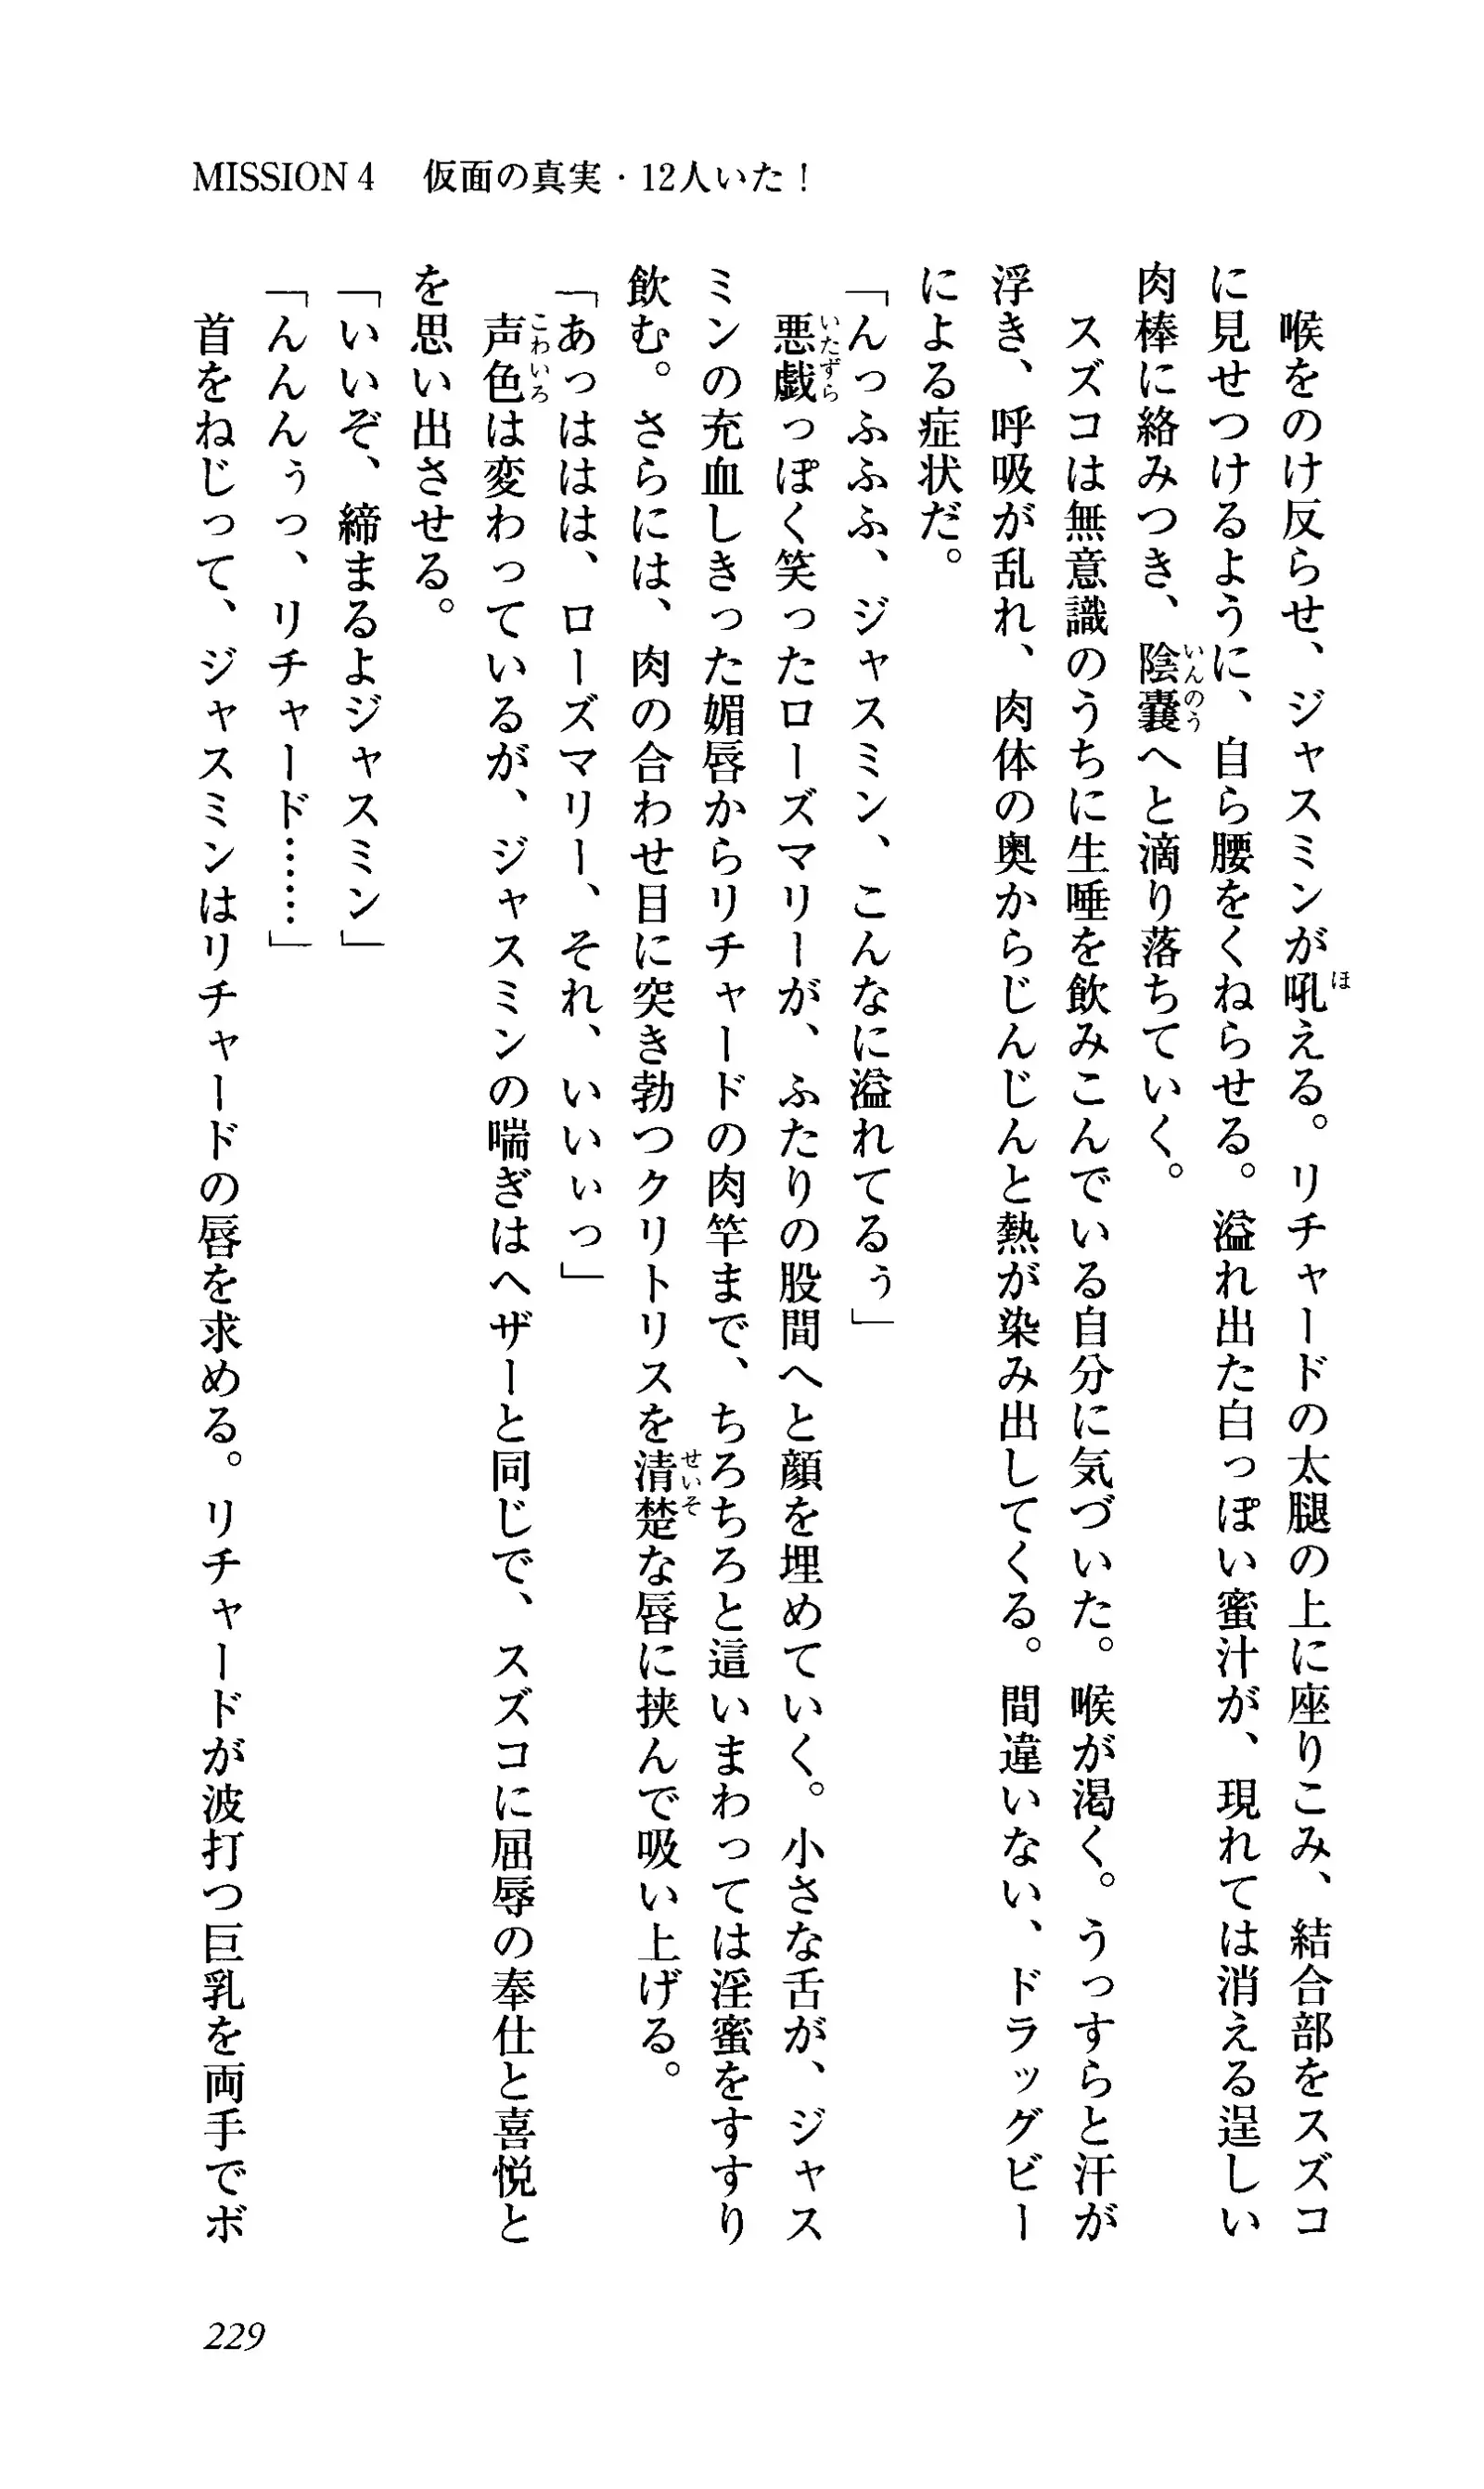 MISSION 4 仮面の真実・12人いた！
喉をのけ反らせ、ジャスミンが吼える。リチャードの太腿の上に座りこみ、結合部をスズコ
に見せつけるように、自ら腰をくねらせる。溢れ出た白っぽい蜜汁が、現れては消える逞しい
肉棒に絡みつき、陰嚢へと滴り落ちていく。
スズコは無意識のうちに生唾を飲みこんでいる自分に気づいた。喉が渇く。うっすらと汗が
浮き、呼吸が乱れ、肉体の奥からじんじんと熱が染み出してくる。間違いない、ドラッグビー
による症状だ。
「んっふふふ、ジャスミン、こんなに溢れてるぅ」
悪戯っぽく笑ったローズマリーが、ふたりの股間へと顔を埋めていく。小さな舌が、ジャス
ミンの充血しきった媚唇からリチャードの肉竿まで、ちろちろと這いまわっては淫蜜をすすり
飲む。さらには、肉の合わせ目に突き勃つクリトリスを清楚な唇に挟んで吸い上げる。
「あっははは、ローズマリー、それ、いいぃっ」
声色は変わっているが、ジャスミンの喘ぎはヘザーと同じで、スズコに屈辱の奉仕と喜悦と
を思い出させる。
「いいぞ、締まるよジャスミン」
「んんんぅっ、リチャード……」
首をねじって、ジャスミンはリチャードの唇を求める。リチャードが波打つ巨乳を両手でボ
229